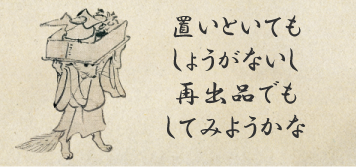 置いといても
しょうがないし
再出品でも
してみようかな